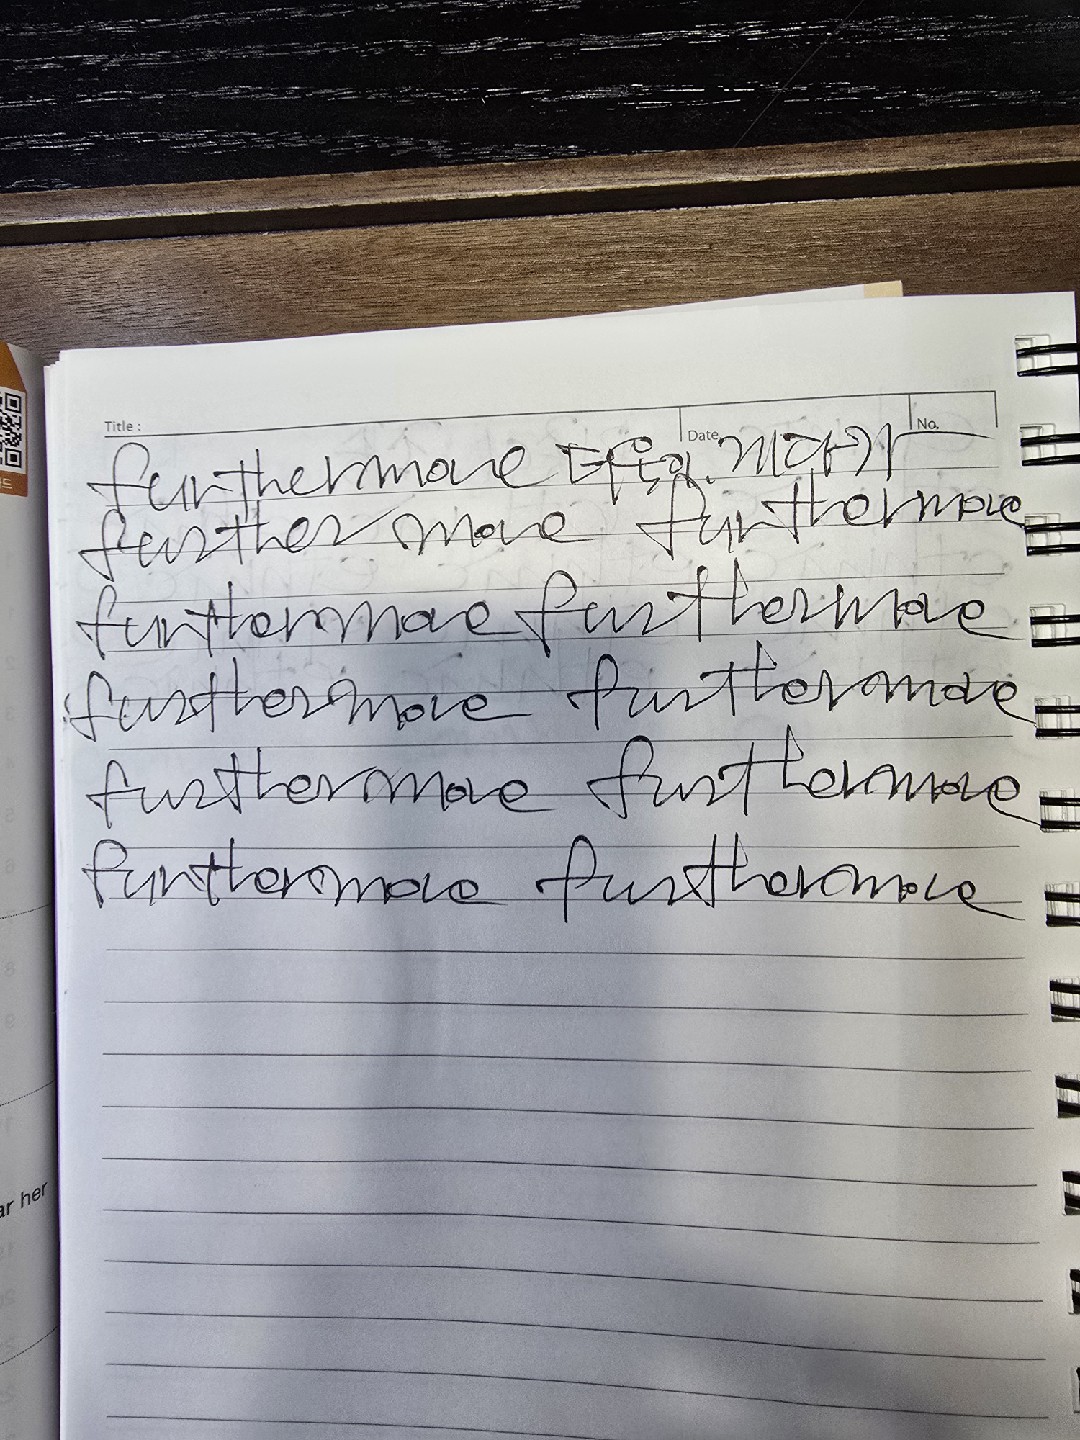 Title :
Date
No.
furthermore 더욱이. 게다가
furthermore furthermore
furthermore furthermore
furthermore furthermore
furthermore furthermore
furthermore furthermore
ar her